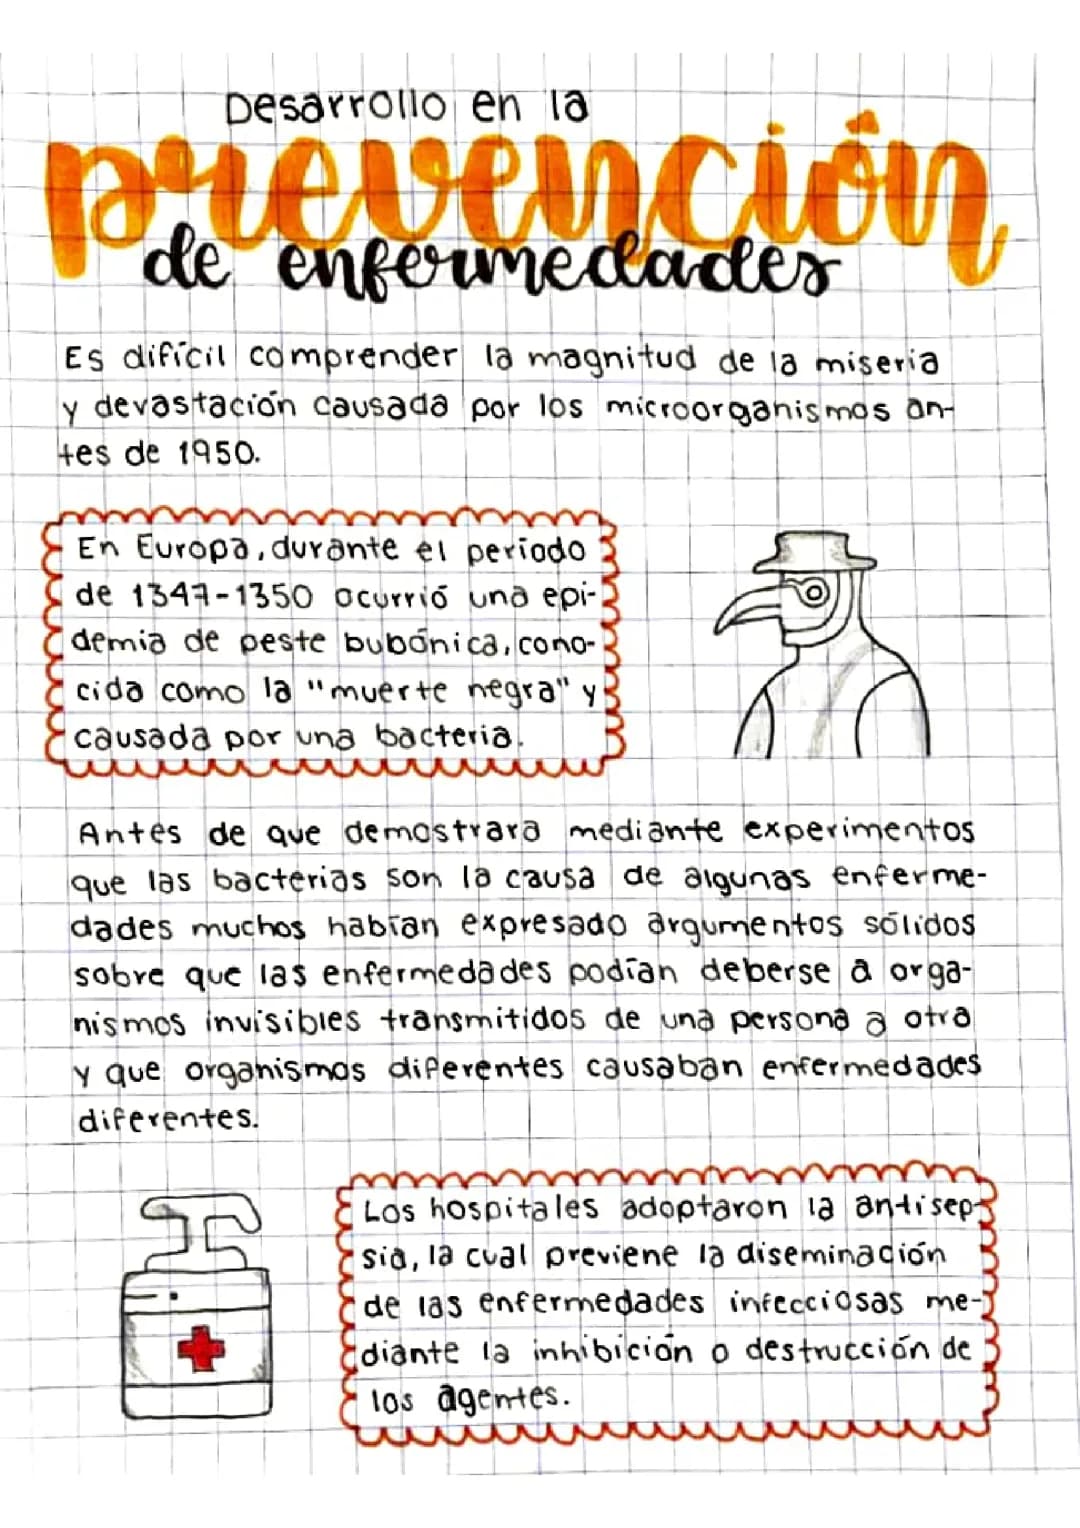 Desarrollo en la
prevención
de enfermedades
Es difícil comprender la magnitud de la miseria
y devastación causada por los microorganismos an-
tes de 1950.
En Europa, durante el período
de 1347-1350 ocurrió una epi-
demia de peste bubónica, cono-
cida como la "muerte negra" y
causada por una bacteria.
Antes de que demostrara mediante experimentos
que las bacterias son la causa de algunas enferme-
dades muchos habían expresado argumentos sólidos
sobre que las enfermedades podían deberse a orga-
nismos invisibles transmitidos de una persona a otra
y que organismos diferentes causaban enfermedades
diferentes.
Los hospitales adoptaron la antisep-
sia, la cual previene la diseminación
de las enfermedades infecciosas me-
diante la inhibición o destrucción de
los agentes.